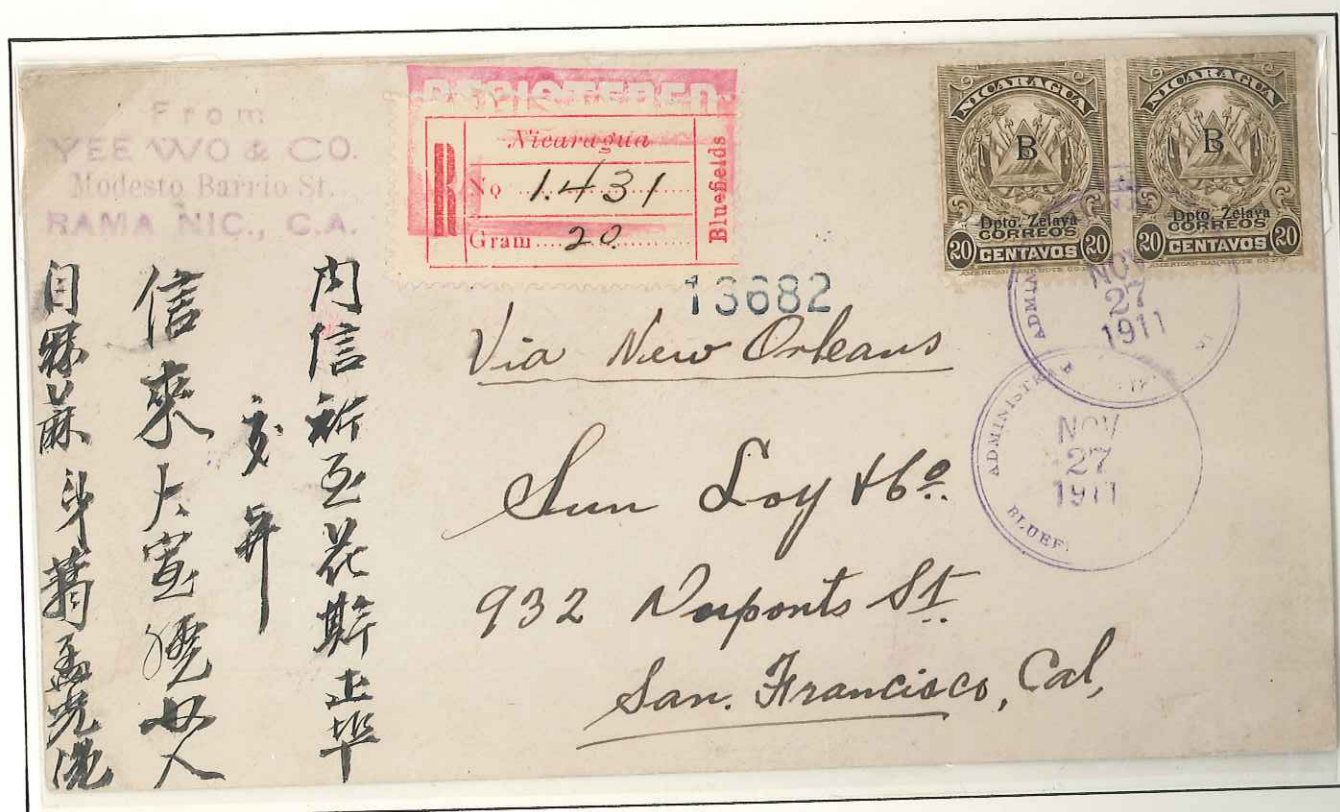 From
YEE WO & CO.
Modesto Barrio St.
RAMA NIC., C.A.
REGISTERED
Nicaragua
R
No 1.431
Gram 20
Bluefields
13682
NICARAGUA
B
Dpto. Zelaya
CORREOS
20 CENTAVOS 20
AMERICAN BANK NOTE CO. N.Y.
NICARAGUA
B
Dpto. Zelaya
CORREOS
20 CENTAVOS 20
AMERICAN BANK NOTE CO. N.Y.
ADMIN
NOV
27
1911
ADMINISTR
NOV
27
1911
BLUEF
Via New Orleans
Sun Loy & Co.
932 Duponts St.
San. Francisco, Cal,
内信祈至花斯正埠
交
信來大寬 女人